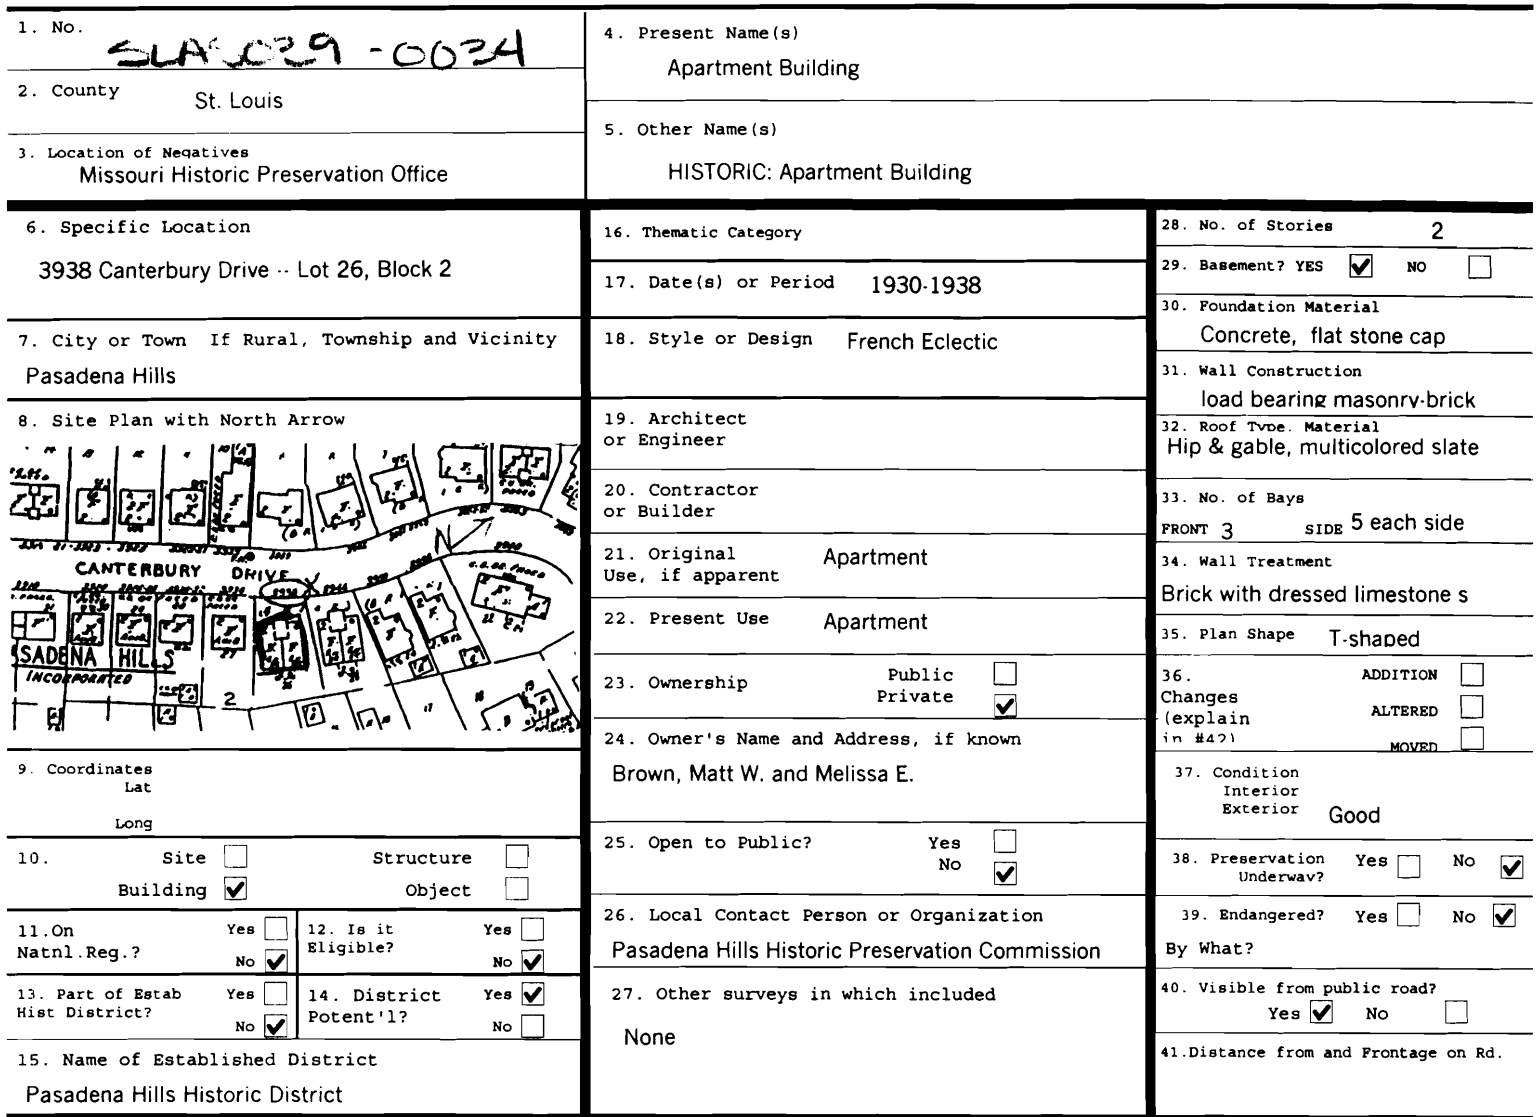 1. No.
SLAS029-0034
2. County
St. Louis
3. Location of Negatives
Missouri Historic Preservation Office
4. Present Name(s)
Apartment Building
5. Other Name(s)
HISTORIC: Apartment Building
6. Specific Location
3938 Canterbury Drive -- Lot 26, Block 2
7. City or Town If Rural, Township and Vicinity
Pasadena Hills
8. Site Plan with North Arrow
N
CANTERBURY DRIVE
SADENA HILLS
INCORPORATED
27
2
17
9. Coordinates
Lat
Long
10. Site Structure
Building Object
11.On Yes
Natnl.Reg.? No
12. Is it Yes
Eligible? No
13. Part of Estab Yes
Hist District? No
14. District Yes
Potent'l? No
15. Name of Established District
Pasadena Hills Historic District
16. Thematic Category
17. Date(s) or Period 1930-1938
18. Style or Design French Eclectic
19. Architect
or Engineer
20. Contractor
or Builder
21. Original Apartment
Use, if apparent
22. Present Use Apartment
23. Ownership Public
Private
24. Owner's Name and Address, if known
Brown, Matt W. and Melissa E.
25. Open to Public? Yes
No
26. Local Contact Person or Organization
Pasadena Hills Historic Preservation Commission
27. Other surveys in which included
None
28. No. of Stories 2
29. Basement? YES NO
30. Foundation Material
Concrete, flat stone cap
31. Wall Construction
load bearing masonry-brick
32. Roof Type. Material
Hip & gable, multicolored slate
33. No. of Bays
FRONT 3 SIDE 5 each side
34. Wall Treatment
Brick with dressed limestone s
35. Plan Shape T-shaped
36. ADDITION
Changes
(explain ALTERED
in #42)
MOVED
37. Condition
Interior
Exterior Good
38. Preservation Yes No
Underway?
39. Endangered? Yes No
By What?
40. Visible from public road?
Yes No
41.Distance from and Frontage on Rd.